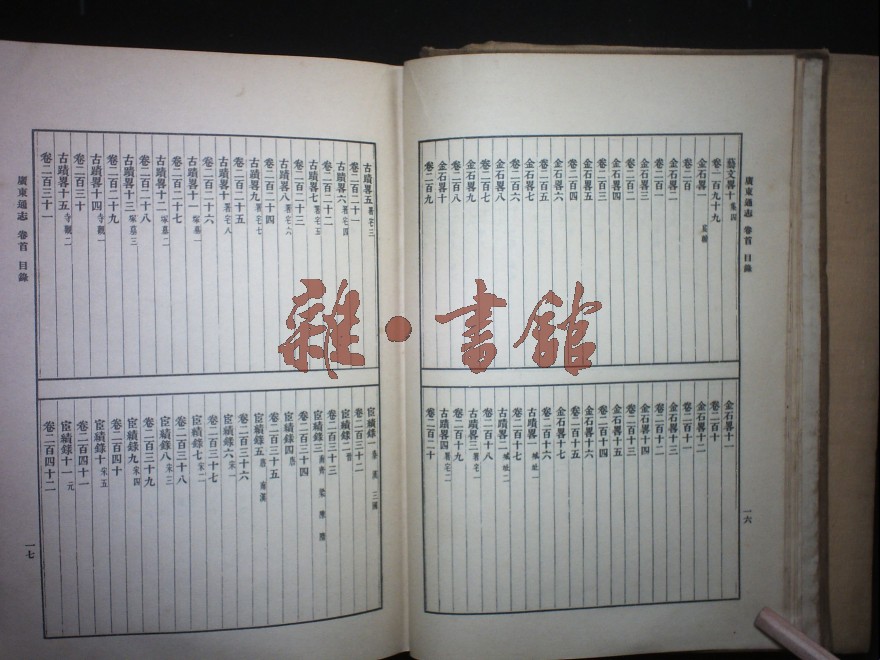 廣東通志 卷首 目錄
一六
藝文畧十 集四
卷一百九十九
金石畧一
卷二百
金石畧二
卷二百一
金石畧三
卷二百二
金石畧四
卷二百三
金石畧五
卷二百四
金石畧六
卷二百五
金石畧七
卷二百六
金石畧八
卷二百七
金石畧九
卷二百八
金石畧十
卷二百九
金石畧十一
卷二百十
金石畧十二
卷二百十一
金石畧十三
卷二百十二
金石畧十四
卷二百十三
金石畧十五
卷二百十四
金石畧十六
卷二百十五
金石畧十七
卷二百十六
古蹟畧一 城址一
卷二百十七
古蹟畧二 城址二
卷二百十八
古蹟畧三 署宅一
卷二百十九
古蹟畧四 署宅二
卷二百二十
古蹟畧五 署宅三
卷二百二十一
古蹟畧六 署宅四
卷二百二十二
古蹟畧七 署宅五
卷二百二十三
古蹟畧八 署宅六
卷二百二十四
古蹟畧九 署宅七
卷二百二十五
古蹟畧十 署宅八
卷二百二十六
古蹟畧十一 塚墓一
卷二百二十七
古蹟畧十二 塚墓二
卷二百二十八
古蹟畧十三 塚墓三
卷二百二十九
古蹟畧十四 寺觀一
卷二百三十
古蹟畧十五 寺觀二
卷二百三十一
宦績錄一 秦 漢 三國
卷二百三十二
宦績錄二 晉
卷二百三十三
宦績錄三 南齊 梁 陳 隋
卷二百三十四
宦績錄四
卷二百三十五
宦績錄五 唐 南漢
卷二百三十六
宦績錄六 宋一
卷二百三十七
宦績錄七 宋二
卷二百三十八
宦績錄八 宋三
卷二百三十九
宦績錄九 宋四
卷二百四十
宦績錄十 宋五
卷二百四十一
宦績錄十一 元
卷二百四十二
廣東通志 卷首 目錄
一七
雜·書館